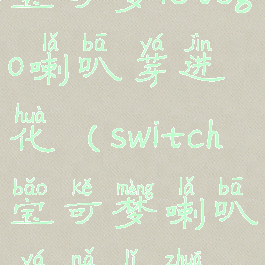 lǎ bā yá jìn
o喇叭芽进
huà
化（switch
bǎo kě mèng lǎ bā
宝可梦喇叭
yá nǎ lǐ zhuā